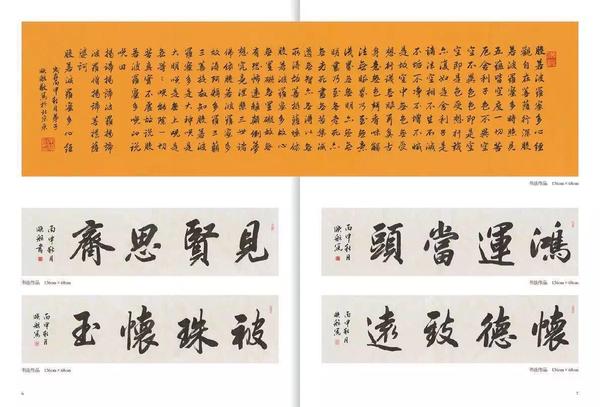 般若波羅蜜多心經
觀自在菩薩行深般
若波羅蜜多時照見
五蘊皆空度一切苦
厄舍利子色不異空
空不異色色即是空
空即是色受想行識
亦復如是舍利子是
諸法空相不生不滅
不垢不淨不增不減
是故空中無色無受
想行識無眼耳鼻舌
身意無色聲香味觸
法無眼界乃至無意
識界無無明亦無無
明盡乃至無老死亦
無老死盡無苦集滅
道無智亦無得以無
所得故菩提薩埵依
般若波羅蜜多故心
無罣礙無罣礙故無
有恐怖遠離顛倒夢
想究竟涅槃三世諸
佛依般若波羅蜜多
故得阿耨多羅三藐
三菩提故知般若波
羅蜜多是大神咒是
大明咒是無上咒是
無等等咒能除一切
苦真實不虛故說般
若波羅蜜多咒即說
咒曰
揭諦揭諦波羅揭諦
波羅僧揭諦菩提薩
婆訶
般若波羅蜜多心經
丙申秋月弟子
敬寫於北京
书法作品 136cm×68cm
見賢思齊
丙申秋月
书法作品 136cm×68cm
鴻運當頭
丙申秋月
书法作品 136cm×68cm
被珠懷玉
丙申秋月
书法作品 136cm×68cm
懷德致遠
丙申秋月
书法作品 136cm×68cm
6
7